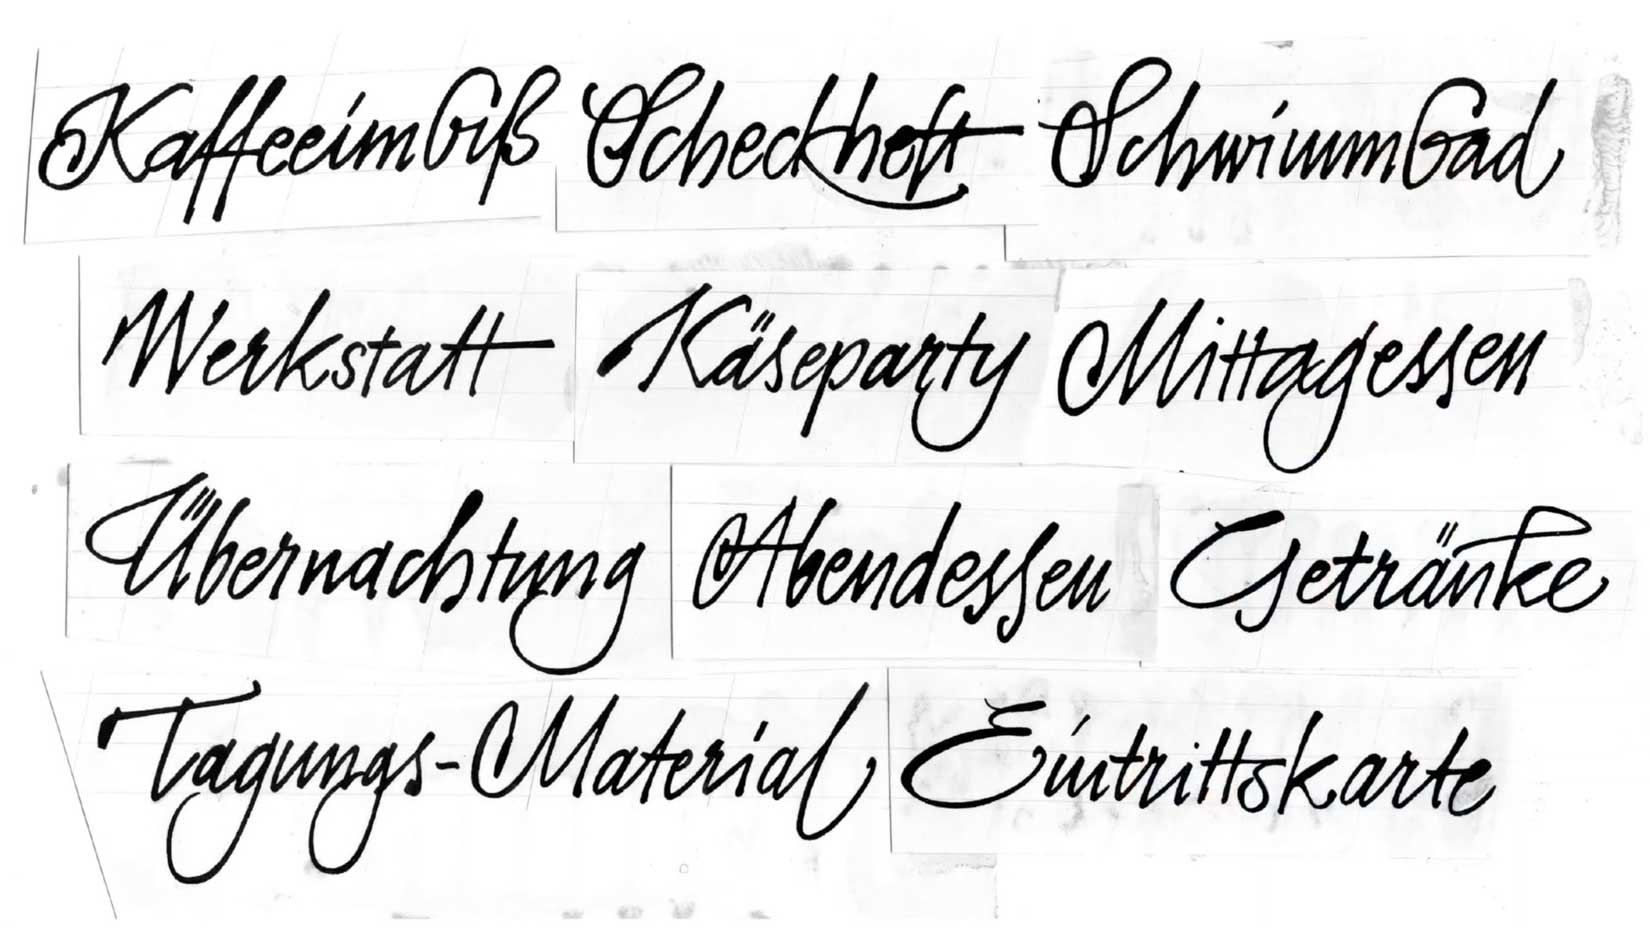 Kaffeeimbiß Scheckheft Schwimmbad
Werkstatt Käseparty Mittagessen
Übernachtung Abendessen Getränke
Tagungs-Material Eintrittskarte